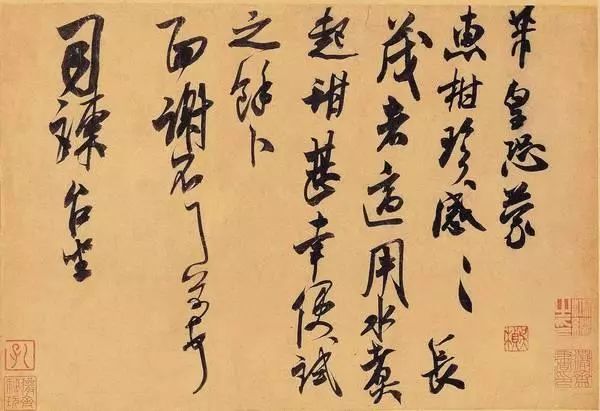 芾皇恐蒙
惠柑珍感〻長
茂者適用水煮
起甜甚幸便試
之餘卜
面謝不一芾頓首
司諫台坐